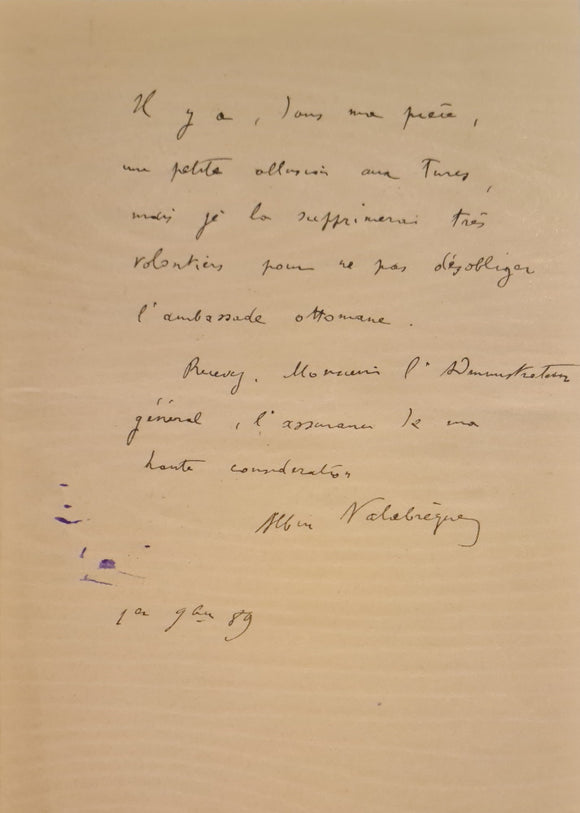 Il y a, dans ma pièce,
une petite allusion aux Turcs,
mais je la supprimerai très
volontiers pour ne pas désobliger
l'ambassade ottomane.
Recevez, Monsieur l'Administrateur
général, l'assurance de ma
haute considération
Albin Valabrègue
1er 9bre 89